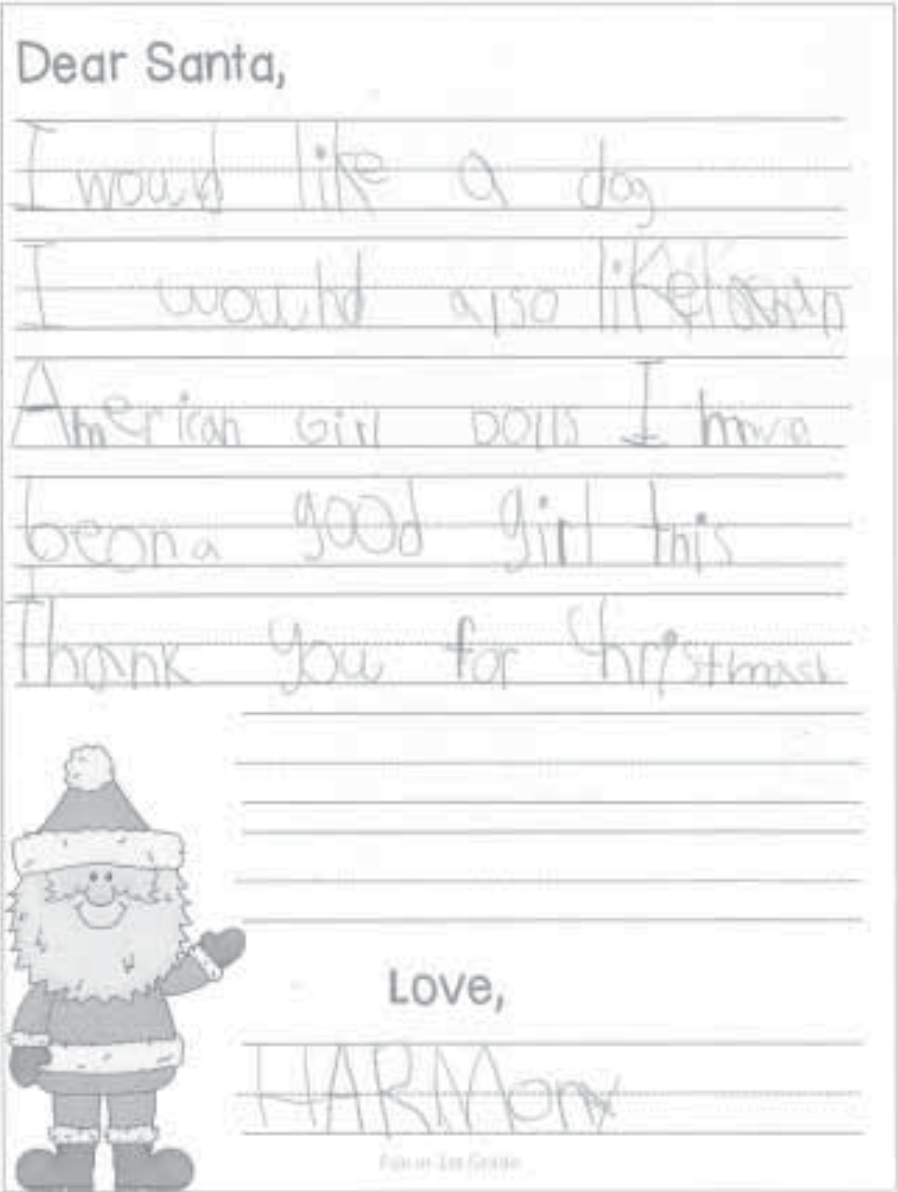 Dear Santa,
I would like a dog
I would also like
American Girl Dolls I have
been a good girl this
Thank you for Christmas
Love,
HARMony
Fun in 1st Grade